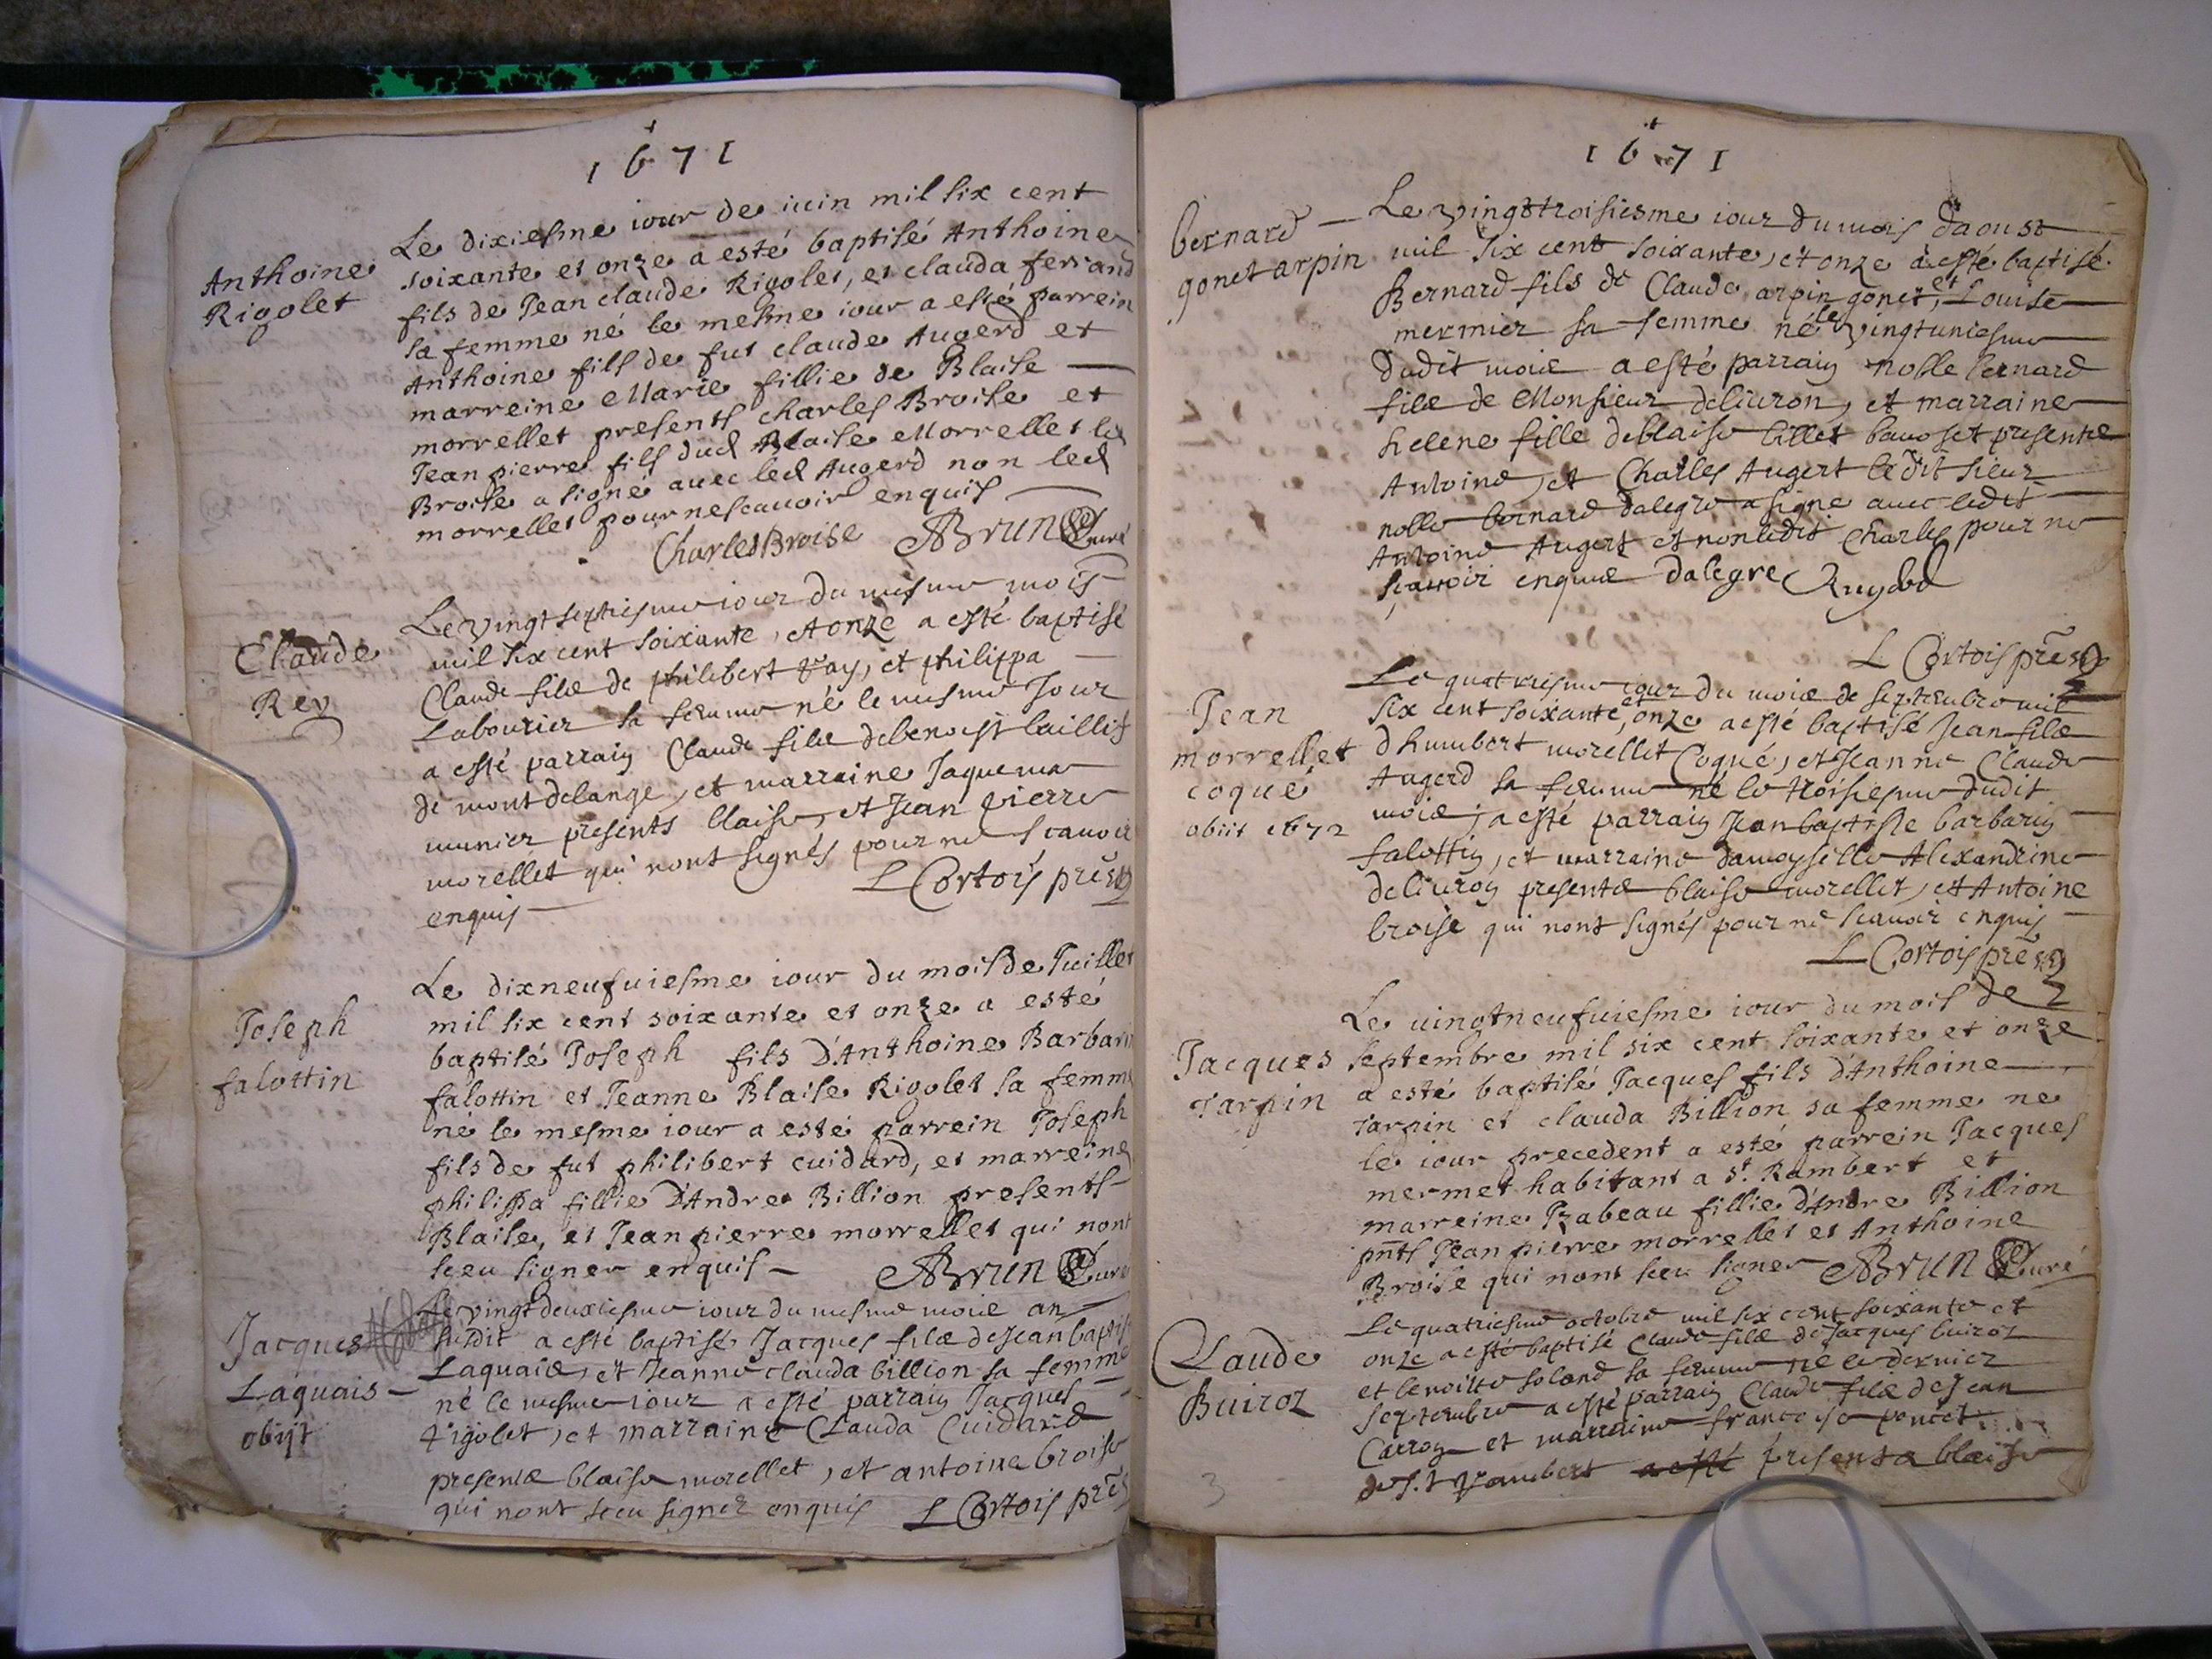 1671
Anthoine
Rigolet
Le dixiesme iour de iuin mil six cent
soixante et onze a esté baptisé Anthoine
fils de Jean claude Rigolet, et clauda ferrand
sa femme né le mesme iour a esté parrein
Anthoine fils de fut claude Augerd et
marreine Marie fillie de Blaise
morrellet presents charles Broise et
Jean pierre fils dud Blaise Morrellet led
Broise a signé avec led Augerd non led
morrellet pour ne scauoir enquis
Charles Broise ABrun Curé
Claude
Rey
Le vingt septiesme iour du mesme mois
mil six cent soixante, et onze a esté baptisé
Claude filz de philibert ray, et philippa
Labourier sa femme né le mesme Jour
a esté parrain Claude filz de benoist baillif
de mont delange, et marraine Jaquema
munier presents blaise, et Jean pierre
morellet qui nont signés pour ne scauoir
enquis L Cortois pres
Joseph
falottin
Le dixneufuiesme iour du mois de Juillet
mil six cent soixante et onze a esté
baptisé Joseph fils D'Anthoine Barbarin
falottin et Jeanne Blaise Rigolet sa femme
né le mesme iour a esté parrein Joseph
fils de fut philibert cuidard, et marreine
philippa fillie D'Andre Billion presents
Blaise, et Jean pierre morrellet qui nont
sceu signer enquis ABrun Curé
Jacques
Laquais
obijt
Le vingt deuxiesme iour du mesme mois an
susdit a esté baptisé Jacques filz de Jean baptiste
Laquais, et Jeanne clauda billion sa femme
né le mesme iour a esté parrain Jacques
rigolet, et marraine Clauda Cuidard
presentz blaise morellet, et antoine broise
qui nont sceu signer enquis L Cortois pres
1671
bernard
gonet arpin
Le vingt troisiesme iour du mois daoust
mil six cent soixante, et onze a esté baptisé
Bernard fils de Claude arpin gonet, et Louise
mermier sa femme né le vingtuniesme
dudit mois a esté parrain noble bernard
filz de Monsieur deliuron, et marraine
helene fille de blaise billet presentz
Antoine, et Charles Augert ledit sieur
noble bernard dalegre a signe auec ledit
Antoine Augert et non ledit Charles pour ne
scauoir enquis Dalegre
L Cortois pres
Jean
morrellet
coqué
obiit 1672
Le quatriesme iour du mois de septembre mil
six cent soixante, et onze a esté baptisé Jean filz
dhumbert morellet Coqué, et Jeanne Claude
Augerd sa femme né le troisiesme dudit
mois, a esté parrain Jean baptiste barbarin
falottin, et marraine damoyselle Alexandrine
deliuron presentz blaise morellet, et Antoine
broise qui nont signés pour ne scauoir enquis
L Cortois pres
Jacques
Tarpin
Le uingtneufuiesme iour du mois de
septembre mil six cent soixante et onze
a esté baptisé Jacques fils d'Anthoine
Tarpin et clauda Billion sa femme ne
le iour precedent a esté parrein Jacques
mermet habitant a St. Rambert et
marreine Izabeau fillie d'Andre Billion
pnts Jean pierre morrellet et Anthoine
Broise qui nont sceu signer ABrun Curé
Claude
Buiroz
Le quatriesme octobre mil six cent soixante et
onze a esté baptisé Claude filz de Jacques buiroz
et benoitte soland sa femme né le dernier
septembre a esté parrain Claude filz de Jean
Carron et marraine francoise poncet
de St rambert a esté presentz blaise
3